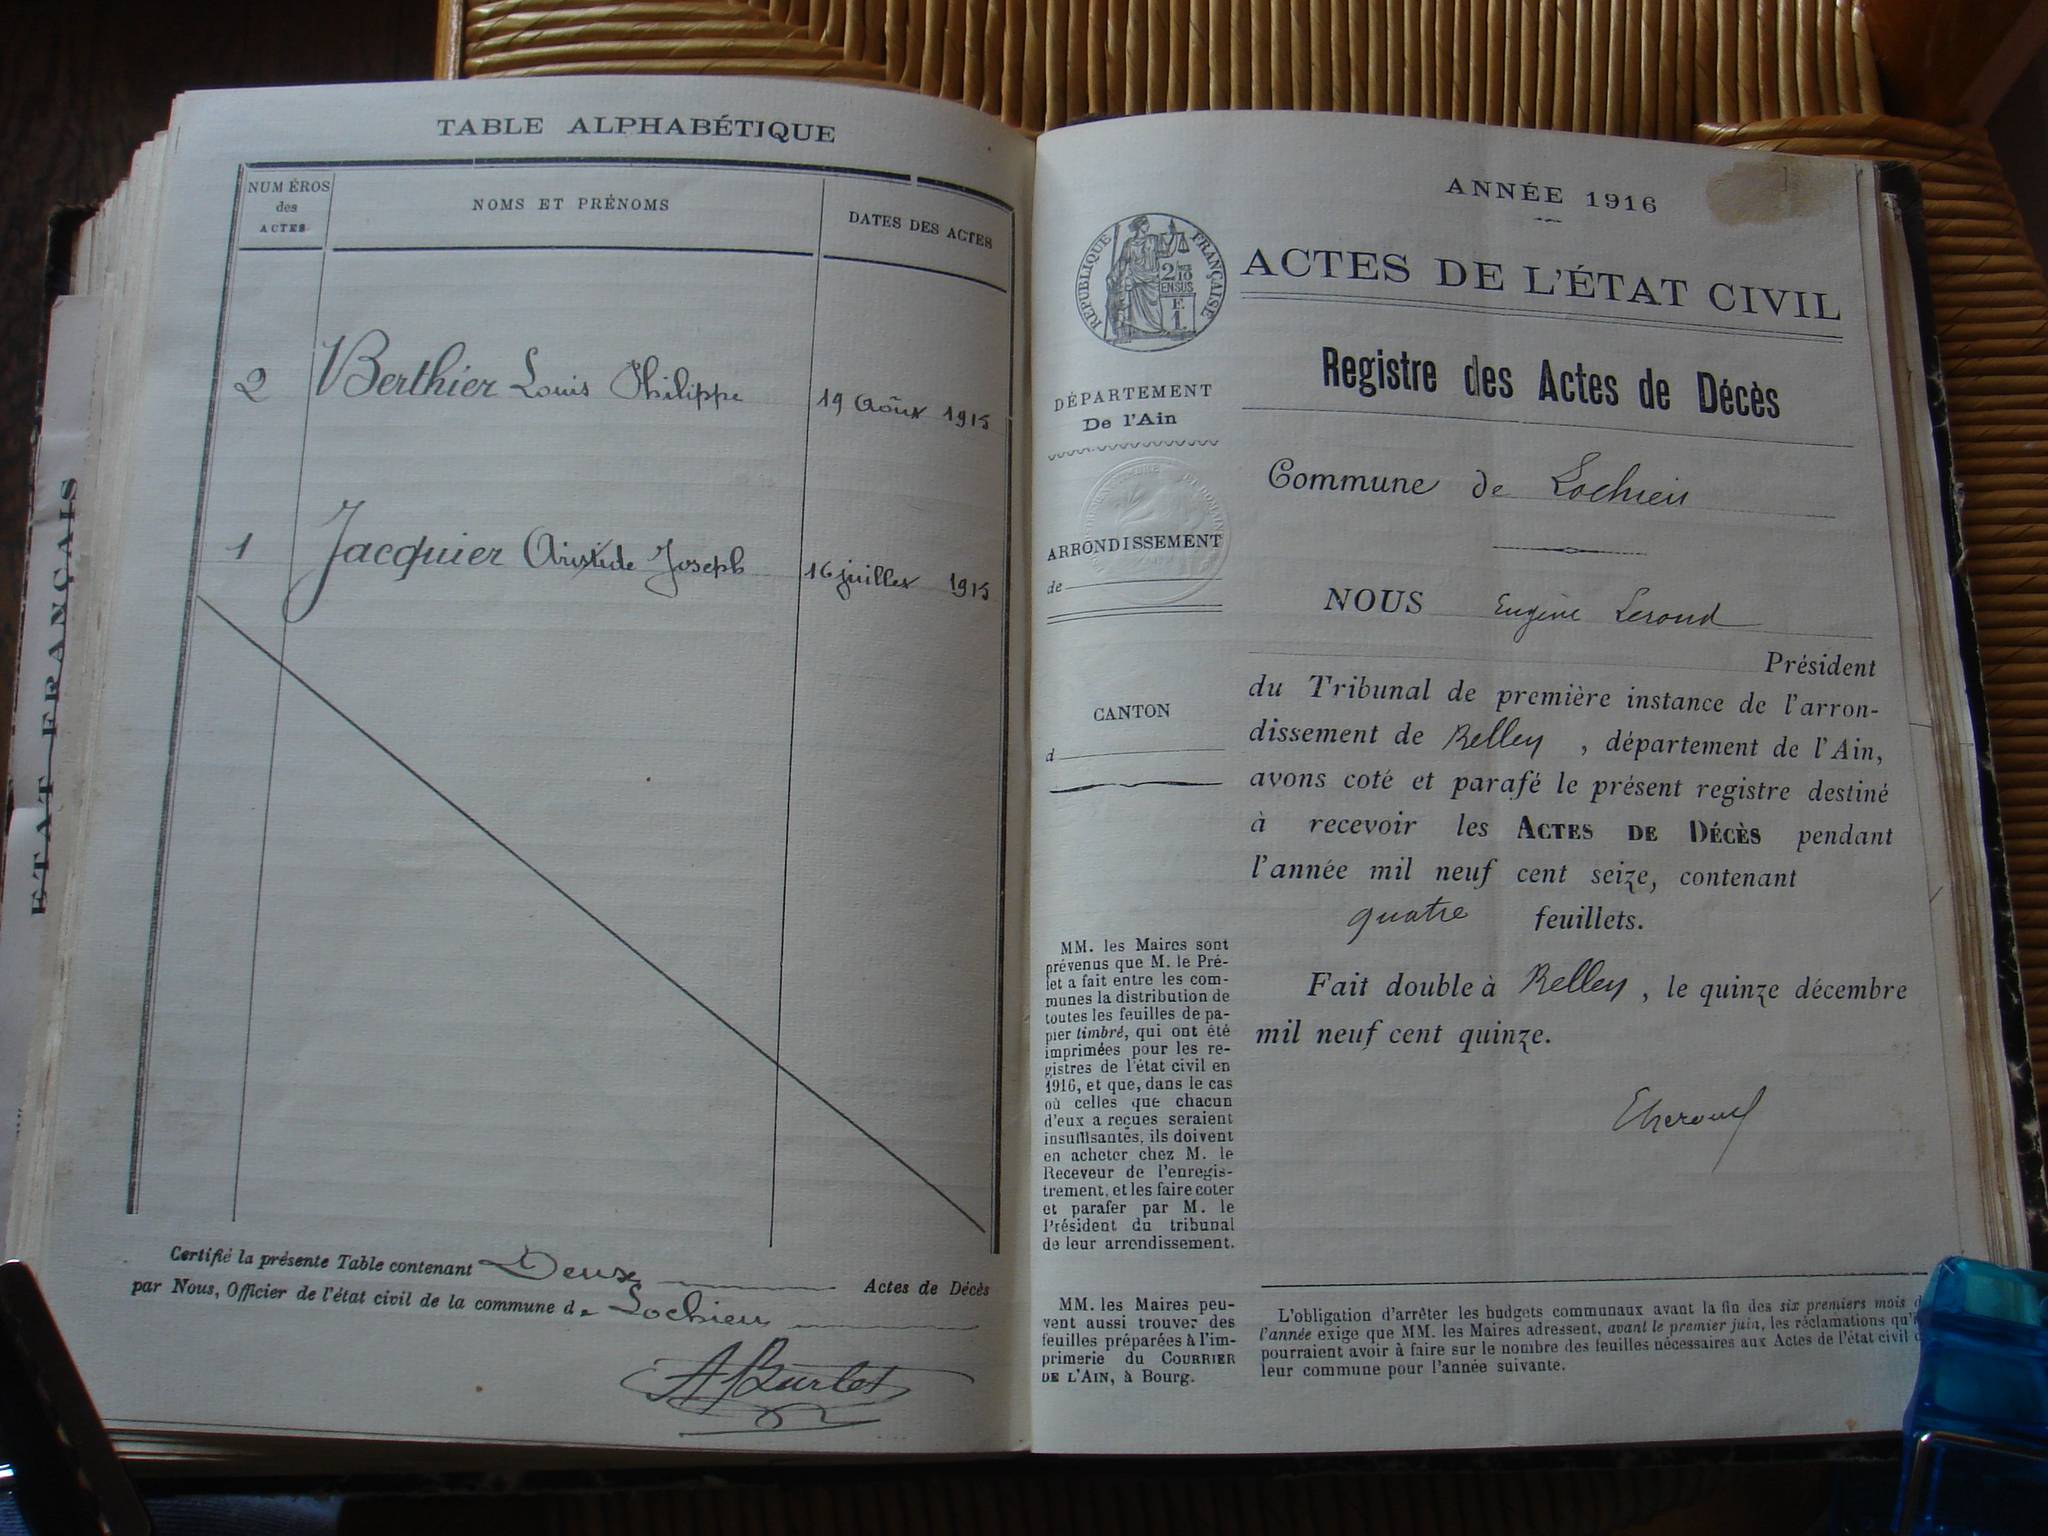 TABLE ALPHABÉTIQUE
NUMÉROS
des
ACTES
NOMS ET PRÉNOMS
DATES DES ACTES
2 Berthier Louis Philippe 19 Août 1915
1 Jacquier Aristide Joseph 16 juillet 1915
Certifié la présente Table contenant Deux Actes de Décès
par Nous, Officier de l'état civil de la commune de Lochieu
A Burlet
ETAT FRANÇAIS
ANNÉE 1916
RÉPUBLIQUE FRANÇAISE
ACTES DE L'ÉTAT CIVIL
Registre des Actes de Décès
DÉPARTEMENT
De l'Ain
Commune de Lochieu
ARRONDISSEMENT
de
NOUS Eugène Leroud
Président
du Tribunal de première instance de l'arron-
dissement de Belley, département de l'Ain,
avons coté et parafé le présent registre destiné
à recevoir les ACTES DE DÉCÈS pendant
l'année mil neuf cent seize, contenant
quatre feuillets.
Fait double à Belley, le quinze décembre
mil neuf cent quinze.
CANTON
d
MM. les Maires sont
prévenus que M. le Pré-
fet a fait entre les com-
munes la distribution de
toutes les feuilles de pa-
pier timbré, qui ont été
imprimées pour les re-
gistres de l'état civil en
1916, et que, dans le cas
où celles que chacun
d'eux a reçues seraient
insuffisantes, ils doivent
en acheter chez M. le
Receveur de l'enregis-
trement, et les faire coter
et parafer par M. le
Président du tribunal
de leur arrondissement.
MM. les Maires peu-
vent aussi trouver des
feuilles préparées à l'im-
primerie du COURRIER
DE L'AIN, à Bourg.
L'obligation d'arrêter les budgets communaux avant la fin des six premiers mois
l'année exige que MM. les Maires adressent, avant le premier juin, les réclamations
pourraient avoir à faire sur le nombre des feuilles nécessaires aux Actes de l'état civil
leur commune pour l'année suivante.